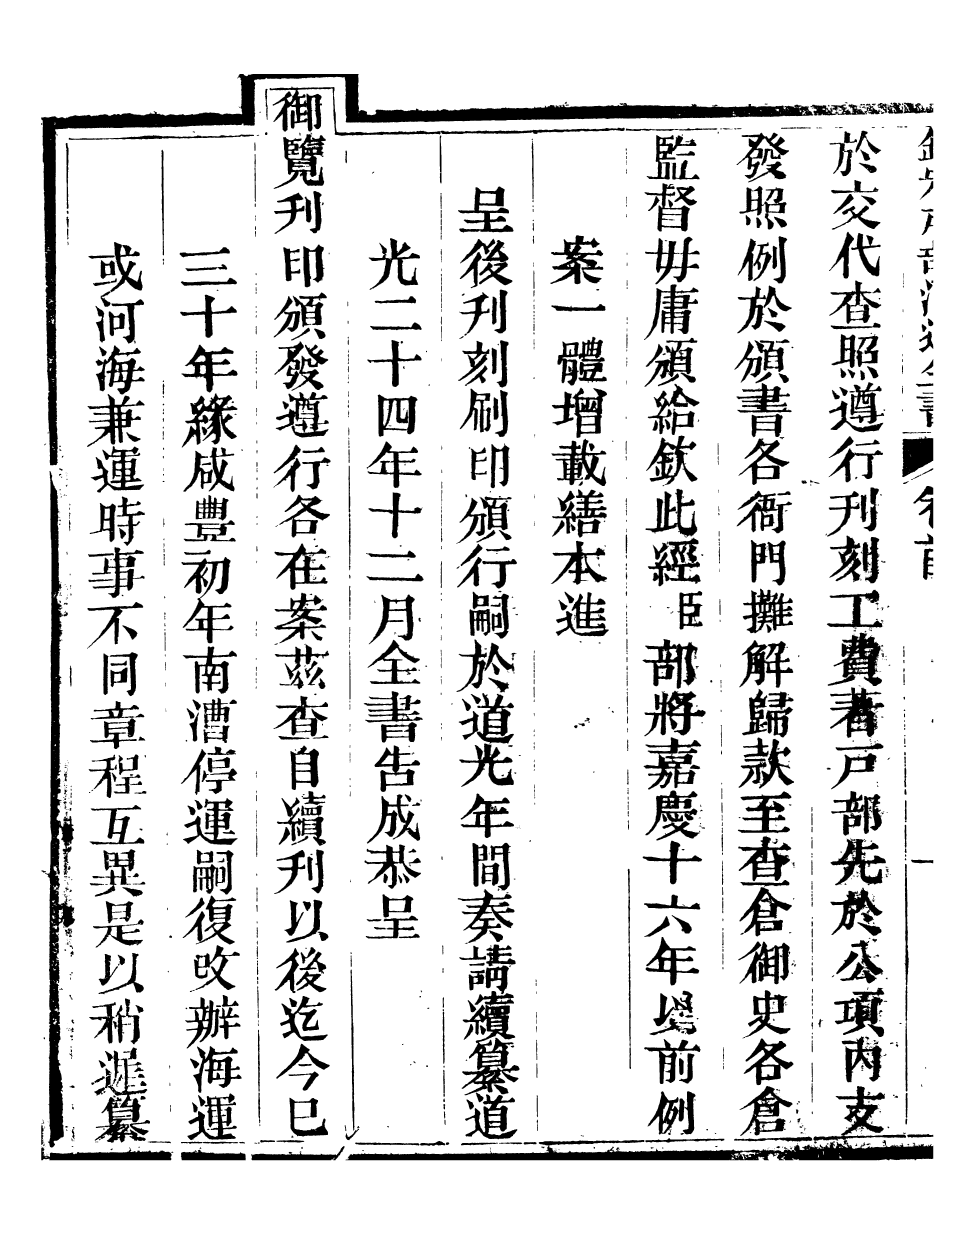 欽定戶部漕運全書 卷首 一
於交代查照遵行刊刻工費著戸部先於公項內支
發照例於頒書各衙門攤解歸款至查倉御史各倉
監督毋庸頒給欽此經臣部將嘉慶十六年以前例
案一體增載繕本進
呈後刊刻刷印頒行嗣於道光年間奏請續纂道
光二十四年十二月全書告成恭呈
御覽刊印頒發遵行各在案茲查自續刊以後迄今已
三十年緣咸豐初年南漕停運嗣復改辦海運
或河海兼運時事不同章程互異是以稍遲纂